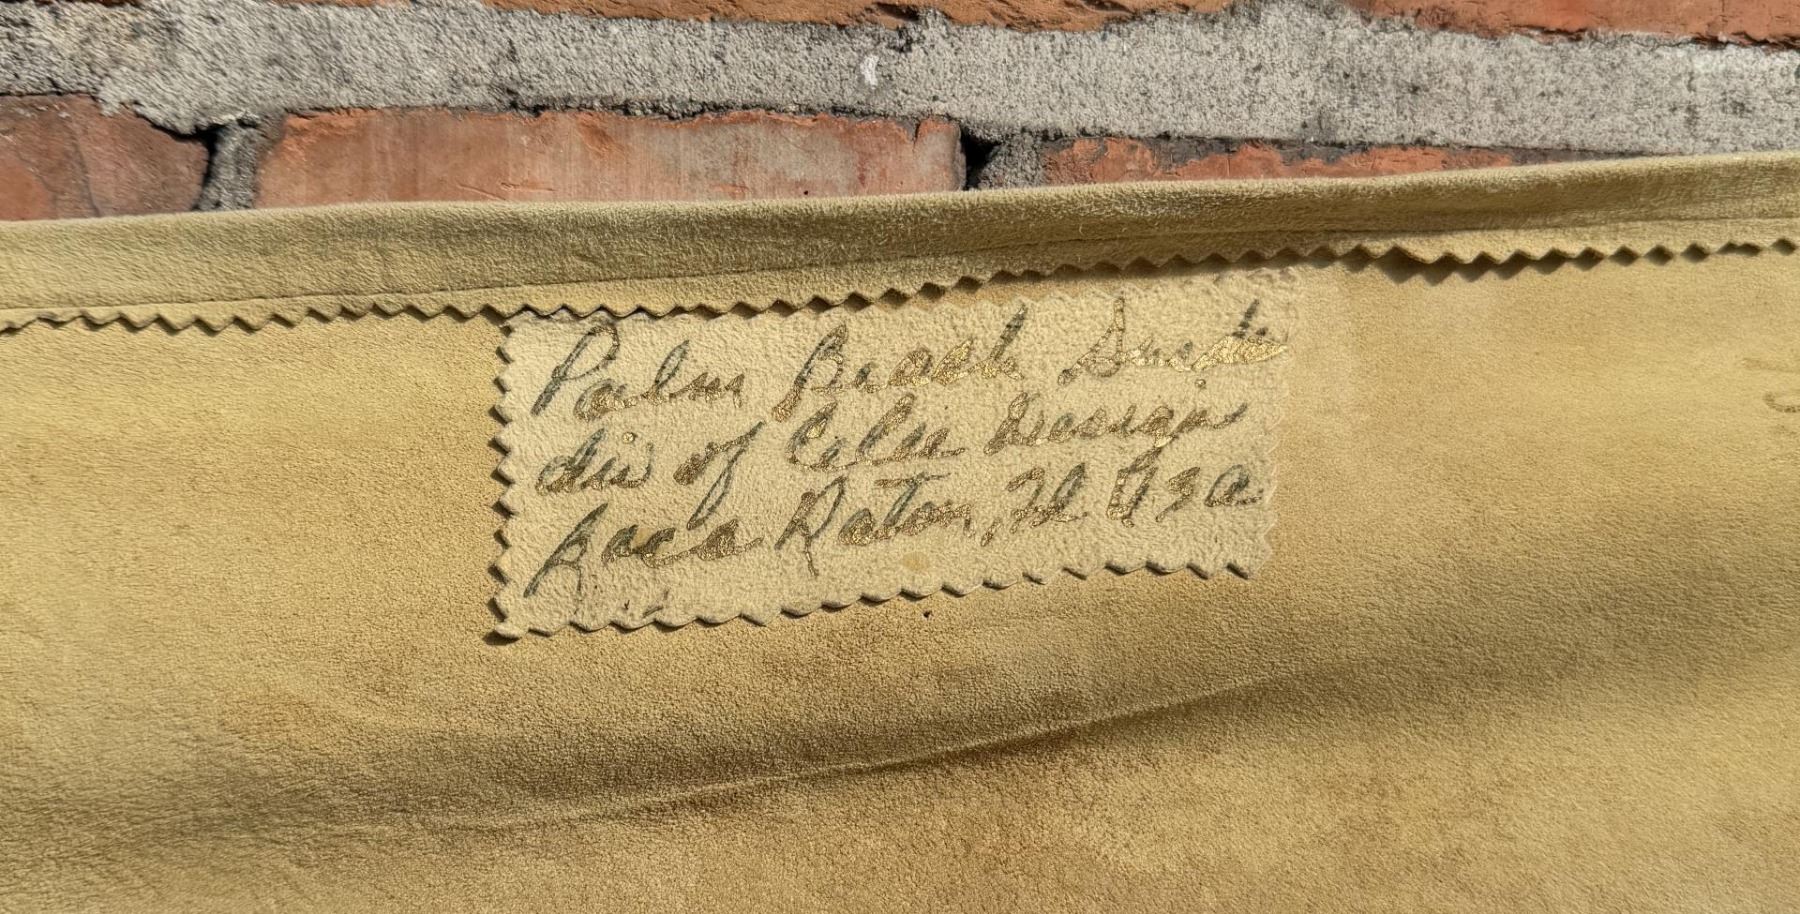 Palm Beach Suede
div of Celee Design
Boca Raton, Fl. USA